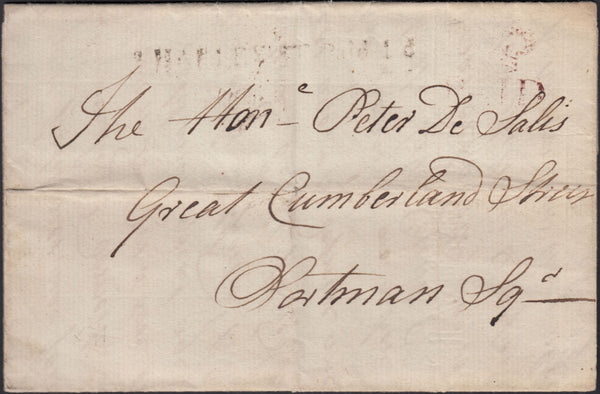 The Honᵉ Peter De Salis
Great Cumberland Street
Portman Sqᵈ